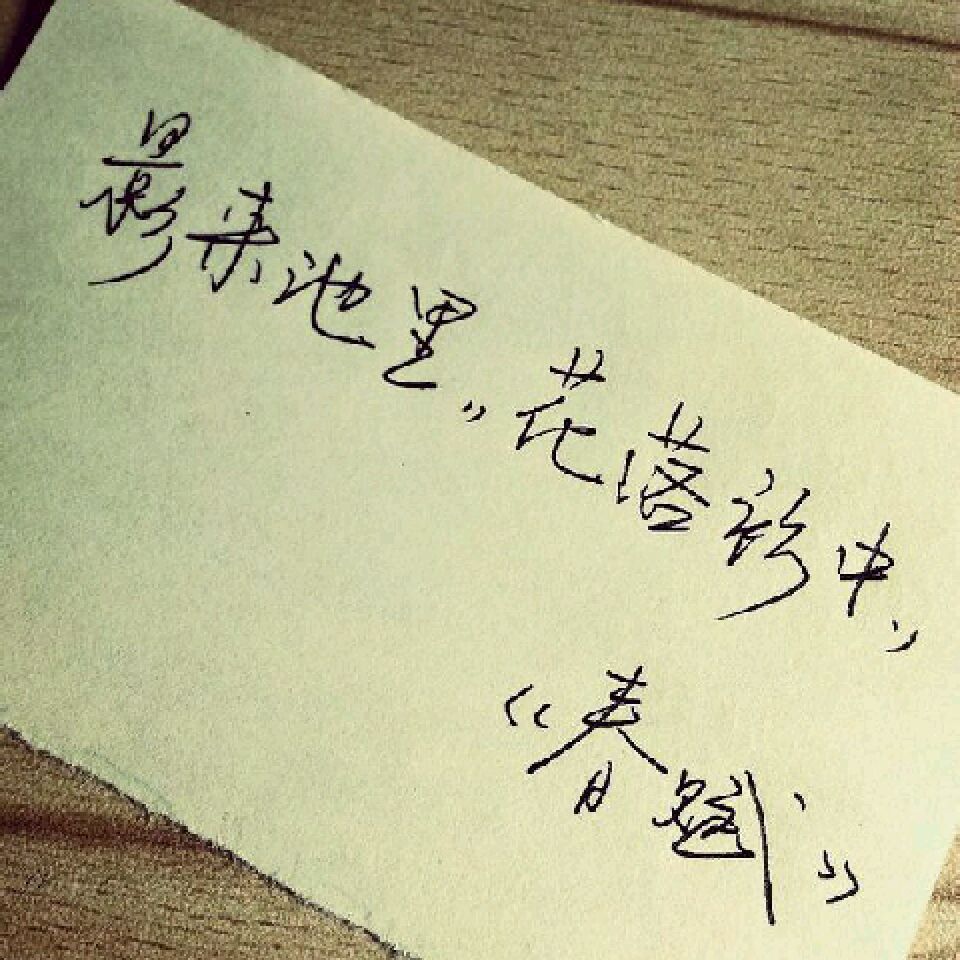 影来池里，花落衫中，
《春赋》